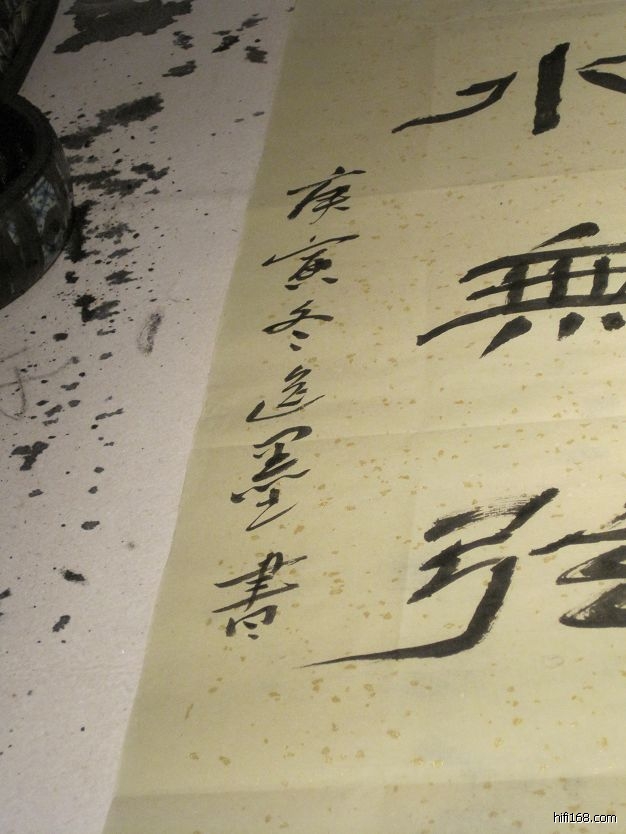 水無弦
庚寅冬逸墨書
hifi168.com